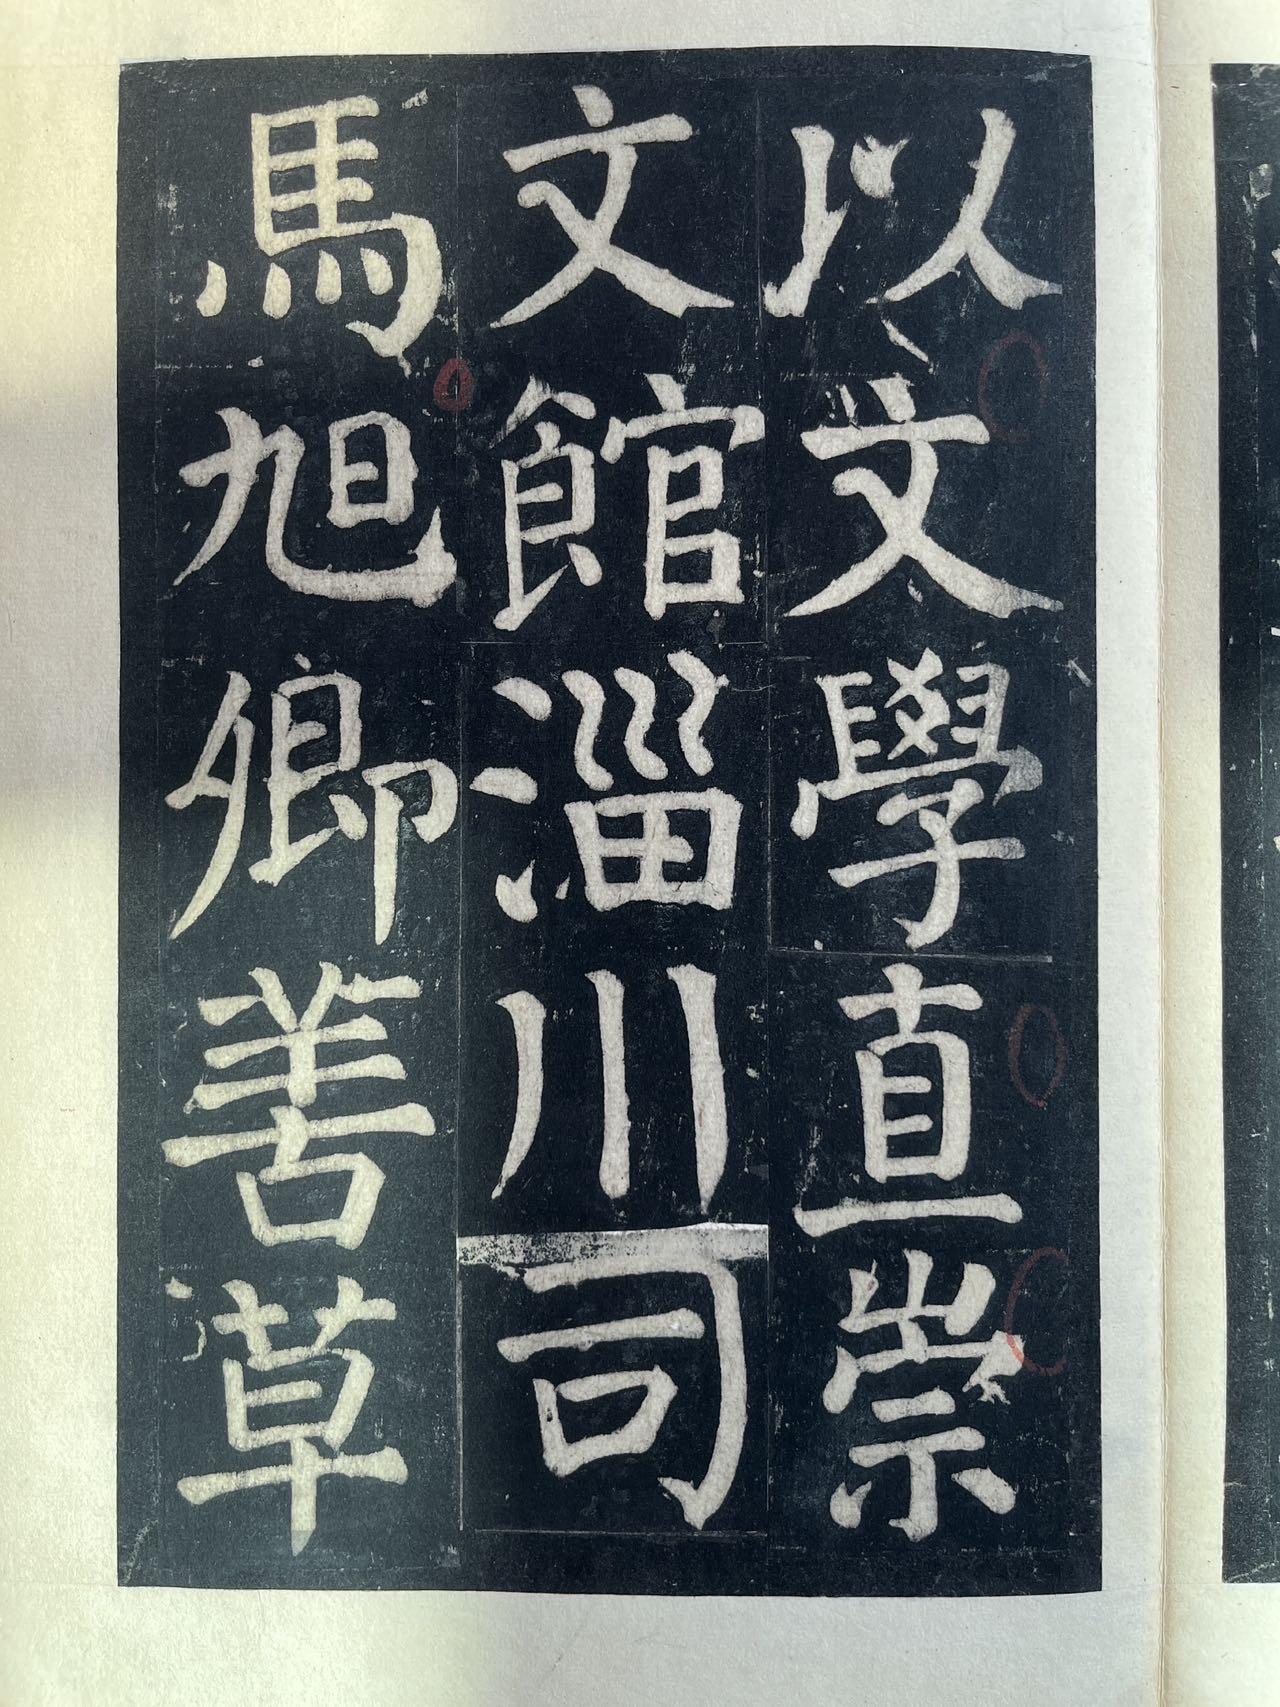 以文學直崇
文館淄川司
馬旭卿善草